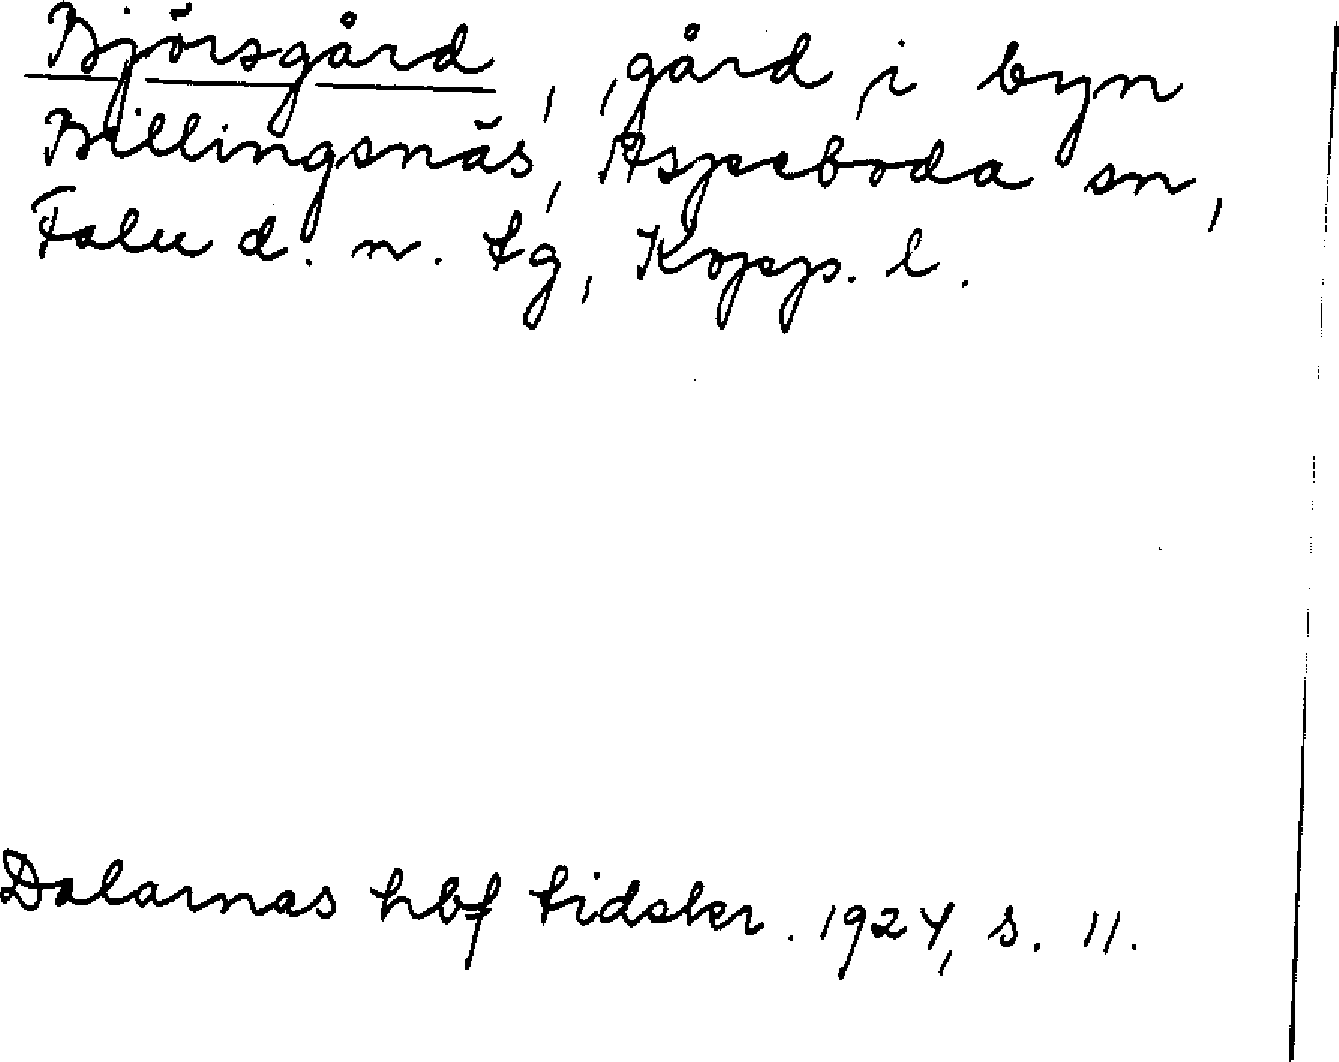 Björsgård, gård i byn
Billingsnäs, Aspeboda sn,
Falu d. n. tg, Kopp. l.
Dalarnas hbf tidskr. 1924, s. 11.